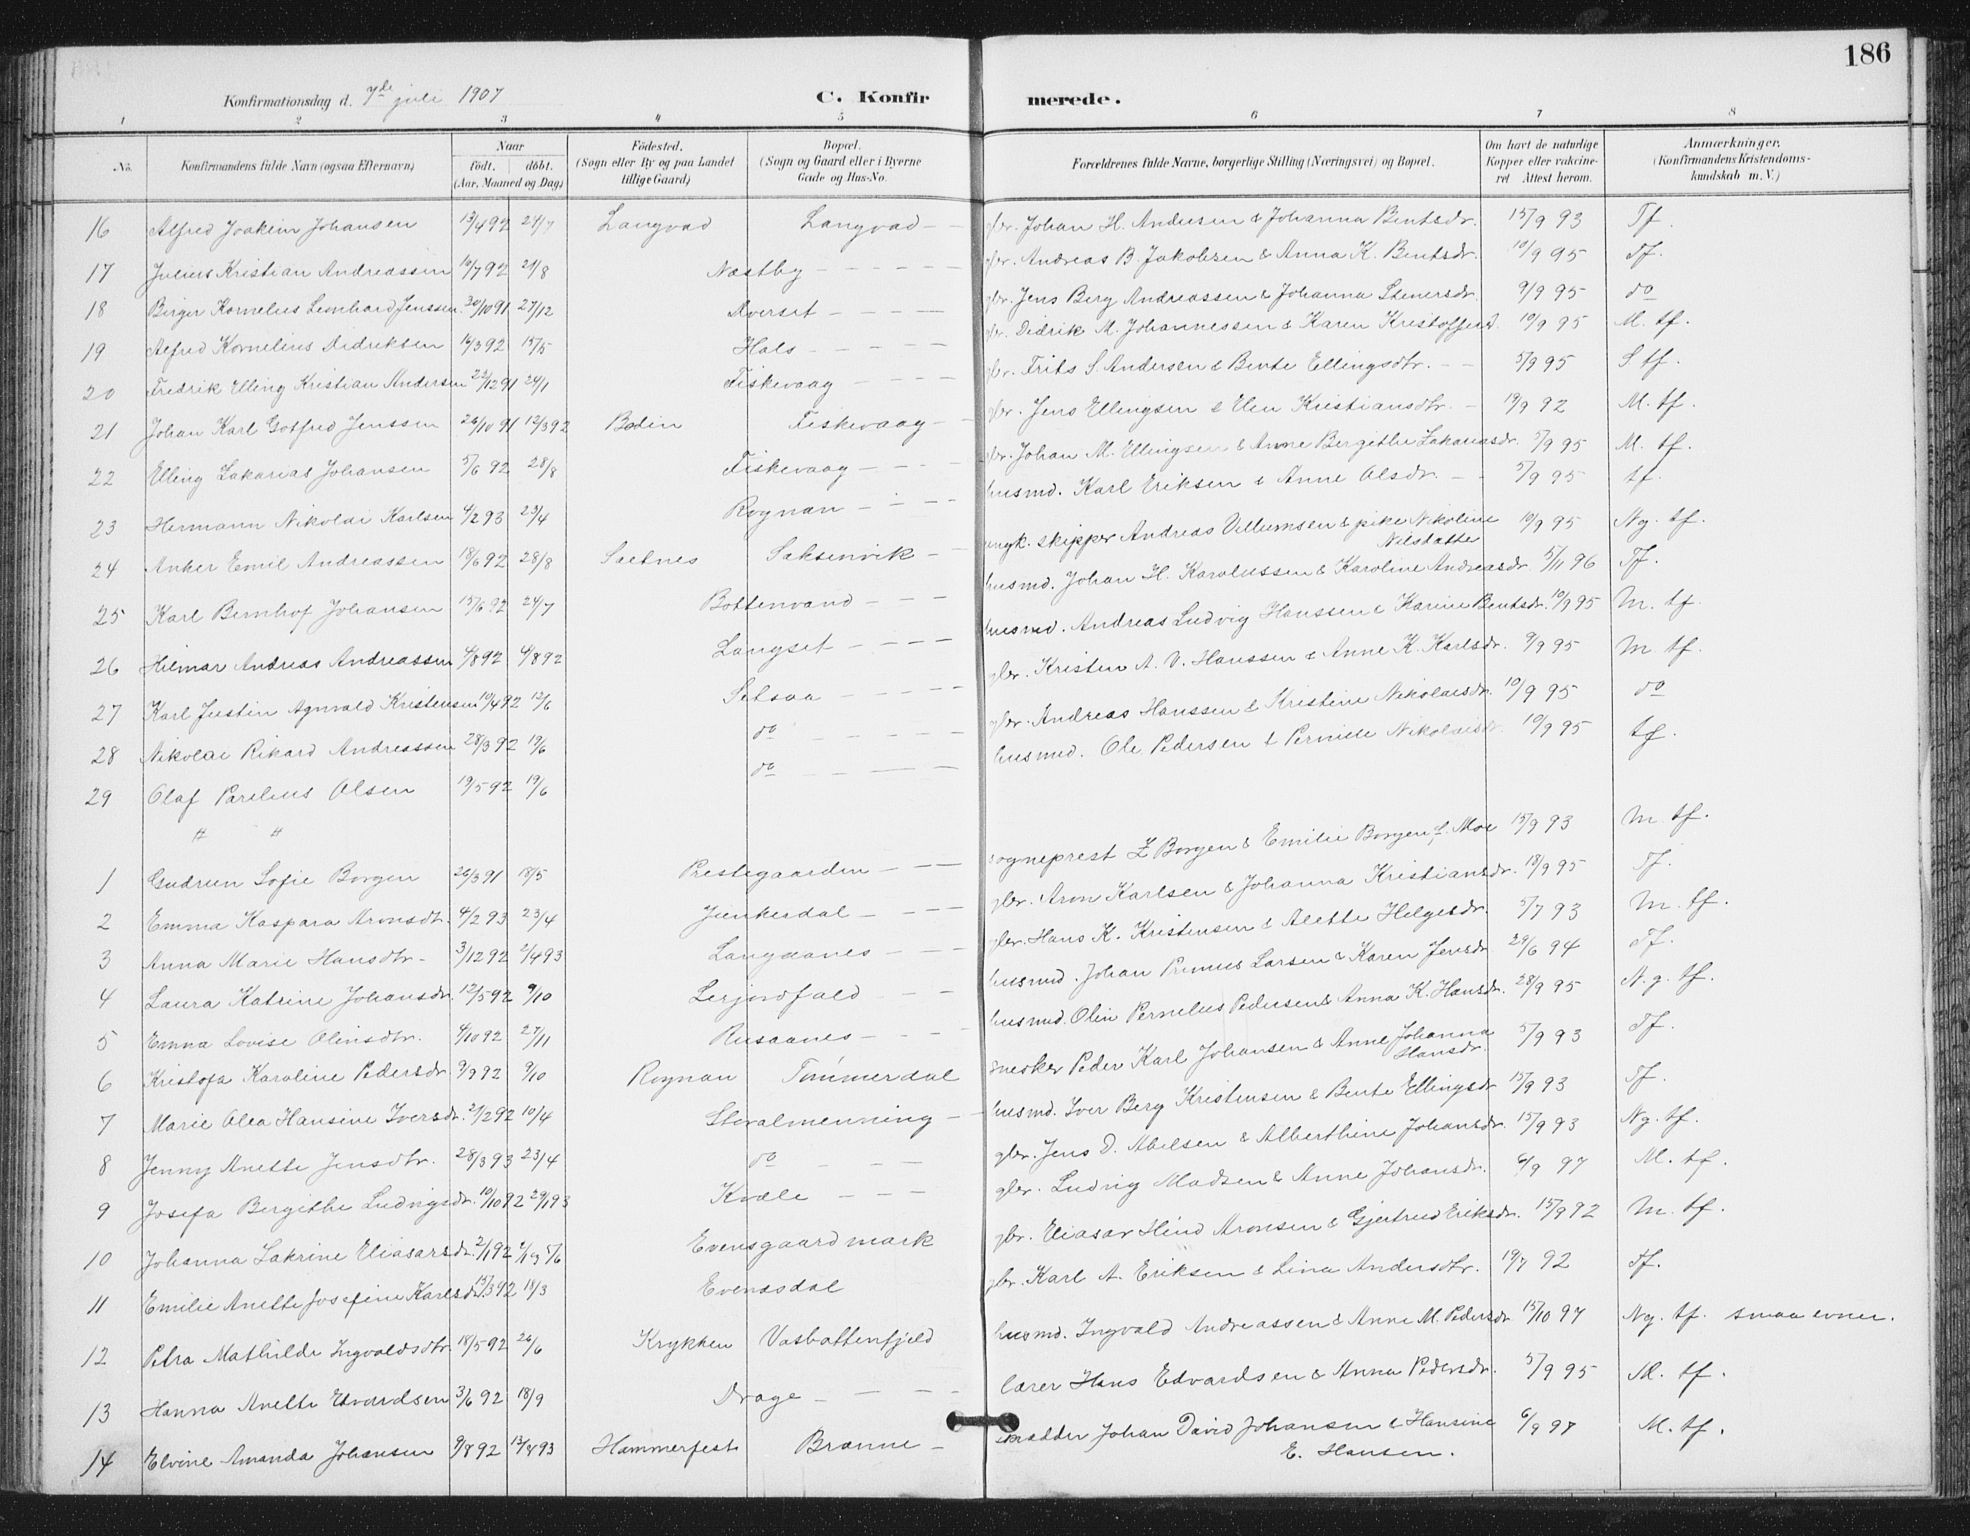 186
Konfirmationsdag d. 7de juli 1907 C. Konfirmerede.
1 2 3 4 5 6 7 8
No. Konfirmandens fulde Navn (ogsaa Efternavn) Naar födt. döbt. (Aar, Maaned og Dag) Födested. (Sogn eller By og paa Landet tillige Gaard) Bopæl. (Sogn og Gaard eller i Byerne Gade og Hus-No. Forældrenes fulde Navne, borgerlige Stilling (Næringsvei) og Bopæl. Om havt de naturlige Kopper eller vakcineret Attest herom. Anmærkninger. (Konfirmandens Kristendomskundskab m. V.)
16 Alfred Joakim Johansen 13/4 92 24/7 Langvad Langvad gbr. Johan H. Andersen & Johanna Bentsdr. 15/9 93 Tf.
17 Julius Kristian Andreassen 10/7 92 21/8 Næstby gbr. Andreas B. Jakobsen & Anna K. Bentsdr. 10/9 95 Tf.
18 Birger Kornelius Leonhard Jenssen 30/10 91 27/12 Vverset gbr. Jens Berg Andreassen & Johanna Stenersdr. 9/9 95 do
19 Alfred Kornelius Didriksen 16/3 92 15/5 Hals gbr. Didrik M. Johannessen & Karen Kristoffersd. 10/9 95 M. tf.
20 Fredrik Elling Kristian Andersen 22/12 91 24/1 Fiskevaag gbr. Frits S. Andersen & Bente Ellingsdtr. 5/9 95 S tf.
21 Johan Karl Gotfred Jenssen 26/10 91 12/3 92 Bodin Fiskevaag gbr. Jens Ellingsen & Elen Kristiansdtr. 19/9 92 M. tf.
22 Elling Zakarias Johansen 5/6 92 28/8 Fiskevaag gbr. Johan M. Ellingsen & Anne Bergithe Zakariasdr. 5/9 95 M. tf.
23 Hermann Nikolai Karlsen 4/2 93 23/4 Rognan husmd. Karl Eriksen & Anne Olsdr. 5/9 95 tf.
24 Anker Emil Andreassen 18/6 92 28/8 Saltnes Saksenvik ungk. skipper Andreas Villumsen & pike Nikoline Nilsdatter 10/9 95 Ng. tf.
25 Karl Bernhof Johansen 15/6 92 24/7 Bottenvand husmd. Johan H. Karolussen & Karoline Andreasdr. 5/11 96 Tf.
26 Hilmar Andreas Andreassen 4/8 92 4/8 92 Langset husmd. Andreas Ludvig Hanssen & Karine Bentsdr. 10/9 95 M. tf.
27 Karl Justin Agnvald Kristensen 10/4 92 12/6 Setsaa gbr. Kristen A. V. Hanssen & Anne K. Karlsdr. 9/9 95 M tf.
28 Nikolai Rikard Andreassen 28/3 92 19/6 do gbr. Andreas Hanssen & Kristine Nikolaisdr. 10/9 95 do
29 Olaf Parelius Olsen 19/5 92 19/6 do husmd. Ole Pedersen & Pernille Nikolaisdr. 10/9 95 tf.
" "
1 Gudrun Sofie Borgen 26/3 91 18/5 Prestegaarden sogneprest Z Borgen & Emilie Borgen f. Moe 15/9 93 M tf.
2 Emma Kaspara Aronsdtr. 4/2 93 23/4 Junkerdal gbr. Aron Karlsen & Johanna Kristiansdr. 18/9 95 Tf.
3 Anna Marie Hansdtr. 3/12 92 2/4 93 Langaanes gbr. Hans K. Kristensen & Alette Helgesdr. 5/7 93 M. tf.
4 Laura Katrine Johansdr. 12/5 92 9/10 Lerjordfald husmd. Johan Primus Larsen & Karen Jensdr. 29/6 94 Tf.
5 Emma Lovise Olinsdtr. 4/10 92 27/11 Rusaanes husmd. Olin Pernelius Pedersen & Anna K. Hansdr. 28/9 95 N.g. tf.
6 Kristofa Karoline Pedersdr 9/9 92 9/10 Rognan Tömmerdal snekker Peder Karl Johansen & Anne Johanna Hansdr. 5/9 93 Tf.
7 Marie Olea Hansine Iversdr. 21/2 92 10/4 Storalmenning husmd. Iver Berg Kristensen & Bente Ellingsdr 15/9 93 Tf.
8 Jenny Anette Jensdtr. 28/3 93 23/4 do gbr. Jens D. Abelsen & Alberthine Johansdr. 15/9 93 Ng. tf.
9 Josefa Bergithe Ludvigsdr. 10/10 92 29/1 93 Kvæle gbr. Ludvig Madsen & Anne Johansdr. 6/9 97 M. tf.
10 Johanna Zakrine Eliasarsdr. 2/1 92 5/6 Evensgaardmark gbr. Eliasar Hind Aronsen & Gjertrud Eriksdr. 15/9 92 M. tf.
11 Emilie Anette Josefine Karlsdr. 13/3 92 18/3 Evensdal gbr. Karl A. Eriksen & Lina Andersdtr. 19/7 92 Tf.
12 Petra Mathilde Ingvaldsdtr. 18/5 92 26/6 Krykken Vasbottenfjeld husmd. Ingvald Andreassen & Anne M. Pedersdr 15/10 97 Ng. tf. smaa evner.
13 Hanna Anette Edvardsen 3/6 92 18/9 Drage lærer Hans Edvardsen & Anna Pedersdr. 5/9 95 M. tf.
14 Elvine Amanda Johansen 9/8 92 13/8 93 Hammerfest Brænne Johan David Johansen & Hansine E. Hansen. 6/9 97 M. tf.